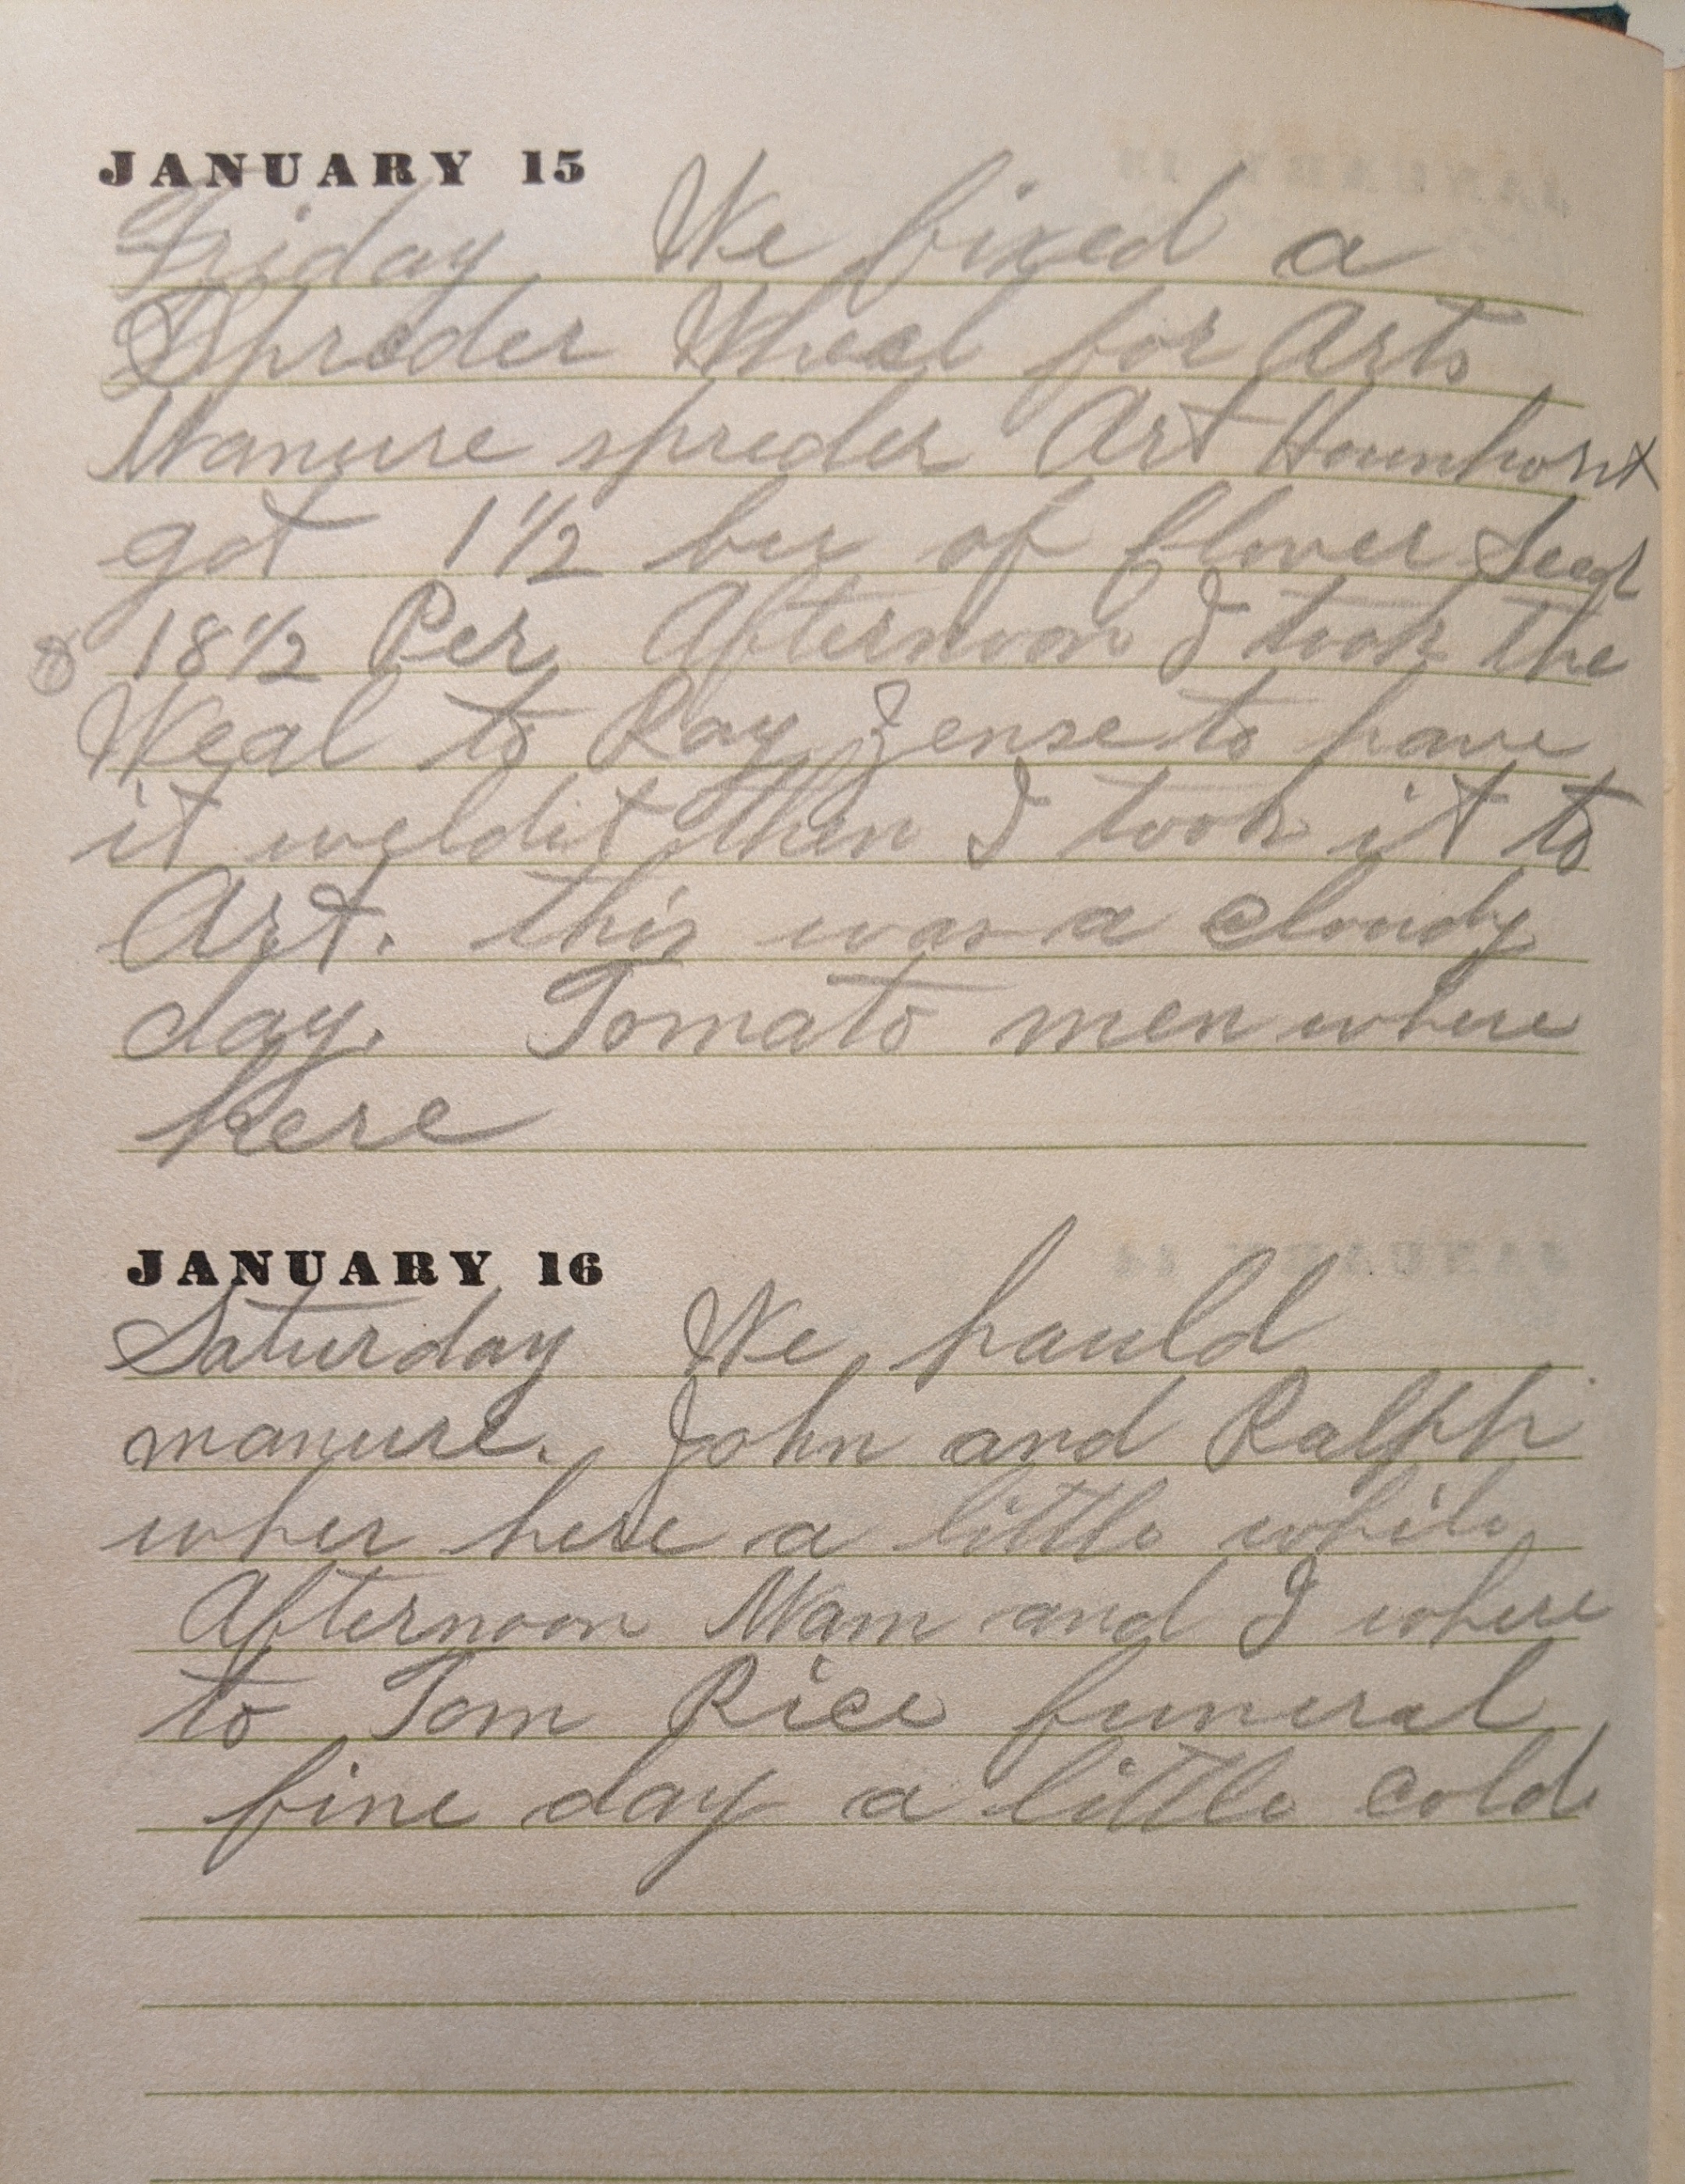 JANUARY 15
Friday We fixed a
Spreder Wheal for Arts
Manure spreder Art
got 1 1/2 bu of flover Seed
18 1/2 Per Afternoon I took the
Weal to Ray Zense to have
it weldit then I took it to
Art. this was a cloudy
day. Tomato men where
here
JANUARY 16
Saturday We hauld
manure. John and Ralph
wher here a little while
Afternoon Mam and I where
to Tom Rice funeral
fine day a little cold